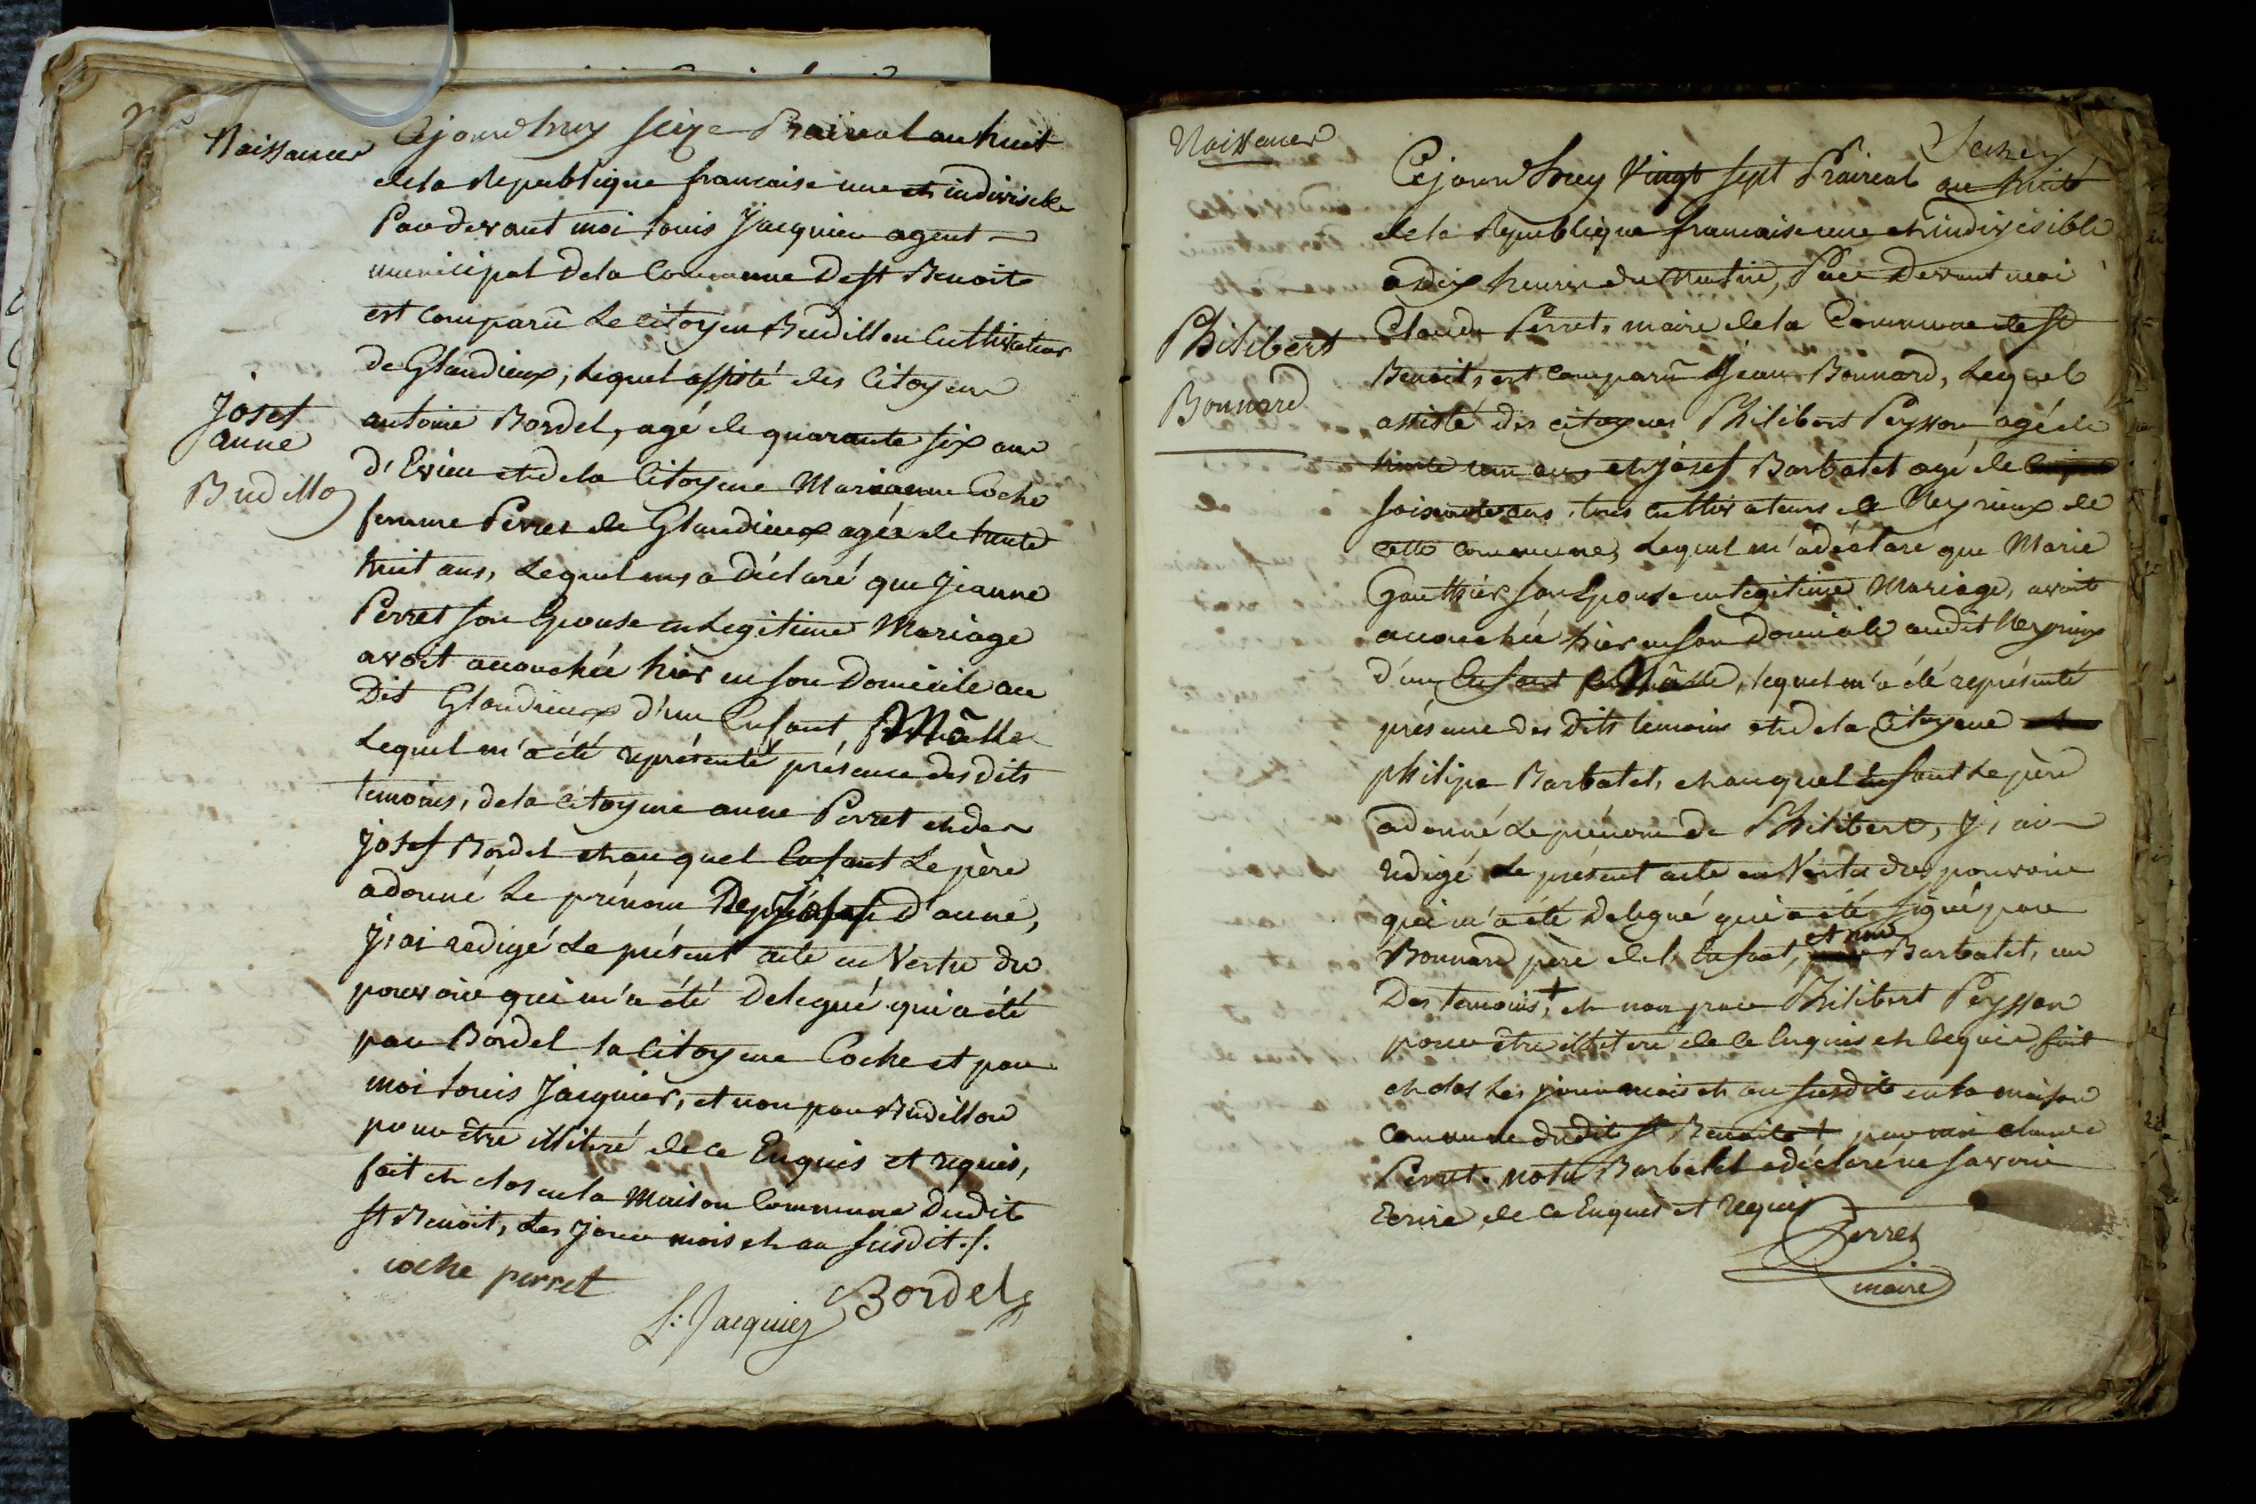 Naissance
Josef
anne
Budillo
Cejourdhuy seize Prairial an huit
de la Republique francaise une et indivisible
Par devant moi Louis Jacquier agent
municipal de la Commune de st Benoit
est comparu le citoyen Budillon Cultivateur
de Glandieux, lequel assisté des Citoyens
antoine Bordel, agé de quarante six ans
d'Evieu et de la Citoyene Marianne Coche
femme Perret de Glandieux agée de trente
huit ans, lequel m'a déclaré que Jeanne
Perret son Epouse en Legitime Mariage
avoit accouchée hier en son Domicile au
Dit Glandieux d'un Enfant Mâlle
Lequel m'a été représenté présence des dits
temoins, de la citoyene anne Perret et de
Josef Bordel et auquel Enfant Le père
a donné Le prénom De Josef d'anne,
J'ai redigé Le présent acte en Vertu du
pouvoir qui m'a été Delegué qui a été
par Bordel la Citoyene Coche et par
moi Louis Jacquier, et non par Budillon
pour être illitéré de ce Enquis et requis,
fait et clos en la Maison Commune Dudit
st Benoit, Les Jour mois et an susdit./.
coche perret
L: Jacquier
Bordel
Naissance
Philibert
Bonnard
Cejourdhuy Vingt sept Prairial an huit
de la Republique francaise une et indivisible
a dix heures du matin, Par Devant moi
Claude Perret, maire de la Commune de st
Benoit, est comparu Jean Bonnard, Lequel
assisté des citoyens Philibert Peysson agé de
trente un ans, et Josef Barbatet agé de
soisante ans, tous cultivateurs a Meyrieux de
cette commune, Lequel m'a déclaré que Marie
Gauthier son Epouse en legitime Mariage, avoit
accouchée hier en son Domicile audit Meyrieux
d'un Enfant Mâlle, lequel m'a été représenté
présence des Dits temoins et de la Citoyene
philipe Barbatet, et auquel Enfant Le père
a donné Le prénom de Philibert, J'ai
redigé Le présent acte en Vertu des pouvoir
qui m'a été Delegué qui a été signé par
Bonnard père de l'Enfant, et non Barbatet, un
Des temoins,+ et non par Philibert Peysson
pour être illitéré de ce Enquis et requis, fait
et clos Les jour mois et an susdit en la maison
commune dudit st Benoit + par moi claude
Perret. nota Barbatet a déclaré ne savoir
Ecrire de ce Enquis et requis
Perret
maire